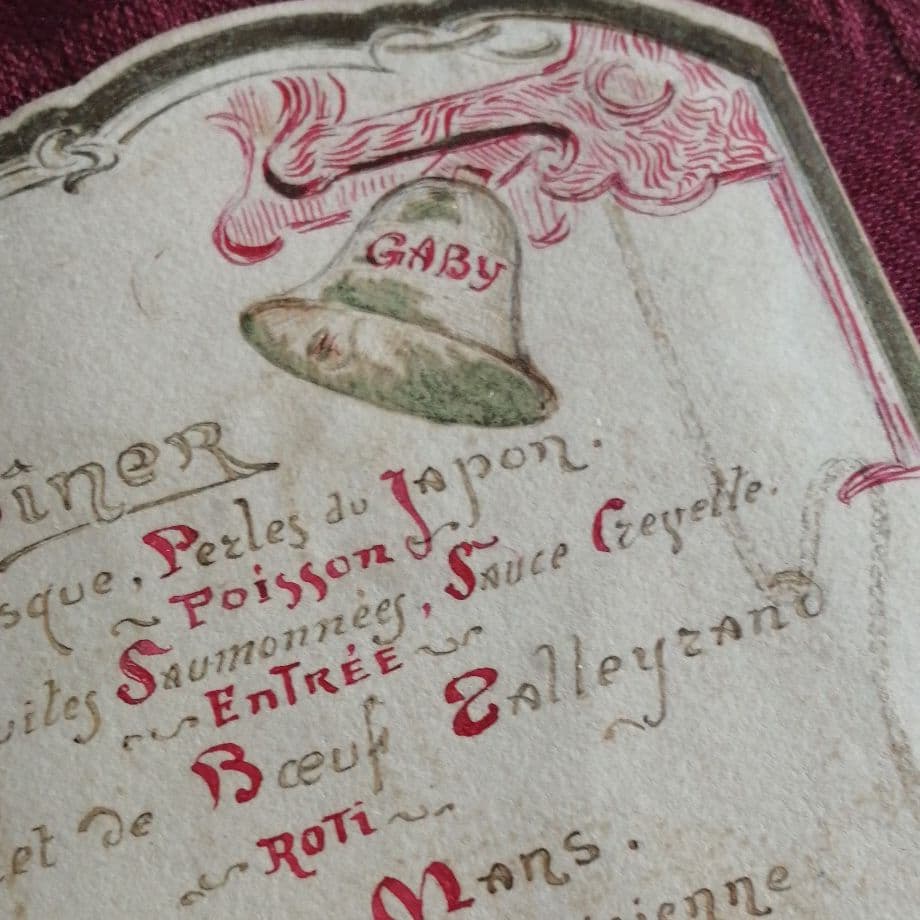 GABY
Dîner
sque, Perles du Japon.
Poisson
uites Saumonnées, Sauce Crevette.
Entrée
et de Bœuf Talleyrand
Roti
Mans.
ienne